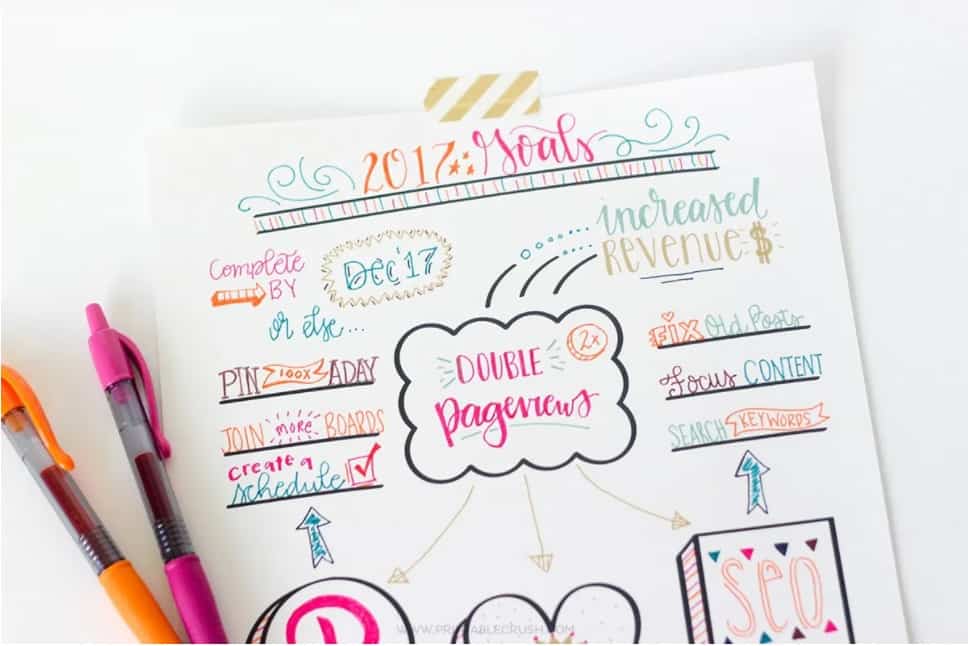 2017: Goals
increased
REVENUE $
Complete
BY
Dec '17
or else...
PIN 100x A DAY
JOIN more BOARDS
create a
schedule
DOUBLE
2x
pageviews
FIX Old Posts
Focus CONTENT
SEARCH KEYWORDS
SEO
WWW.PRINTABLECRUSH.COM